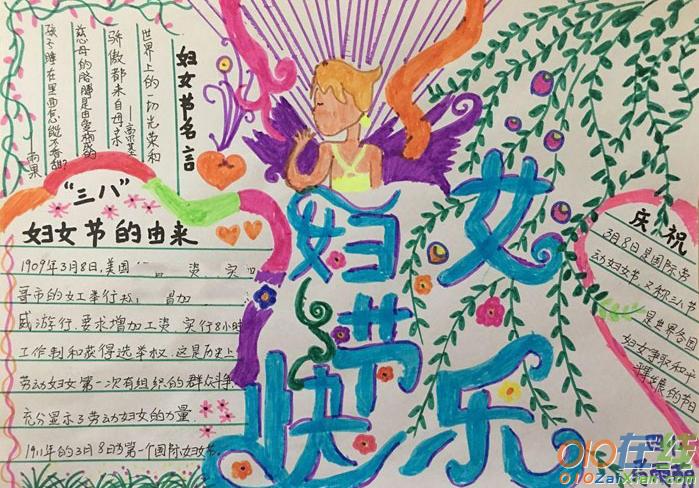 妇女节名言
世界上的一切光荣和
骄傲都来自母亲
——高尔基
慈母的胳膊是由爱构成的
孩子睡在里面怎能不香甜?
——雨果
“三八”
妇女节的由来
1909年3月8日,美国
资 实
哥市的女工举行 加
威游行,要求增加工资 实行8小时
工作制和获得选举权.这是历史上
劳动妇女第一次有组织的群众斗争
充分显示了劳动妇女的力量
1911年的3月8日为第一个国际妇女节.
妇女
节
快乐
庆祝
3月8日是国际劳
动妇女节,又称三八节
是世界各国
妇女争取和平
发展的节日
010在线
010Zaixian.com